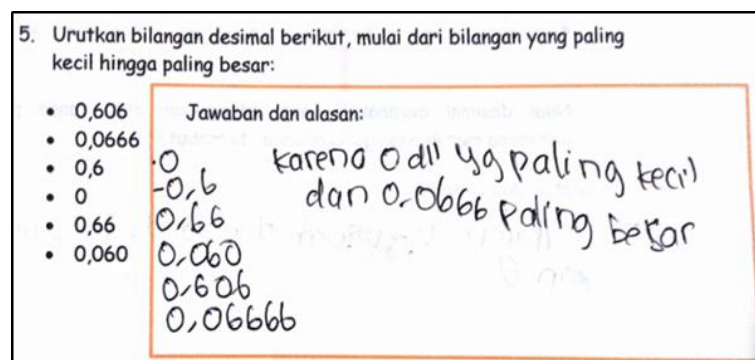 5. Urutkan bilangan desimal berikut, mulai dari bilangan yang paling
kecil hingga paling besar:
• 0,606
• 0,0666
• 0,6
• 0
• 0,66
• 0,060
Jawaban dan alasan:
.0
-0,6
0,66
0,060
0,606
0,06666
karena 0 dll yg paling kecil
dan 0,0666 paling besar